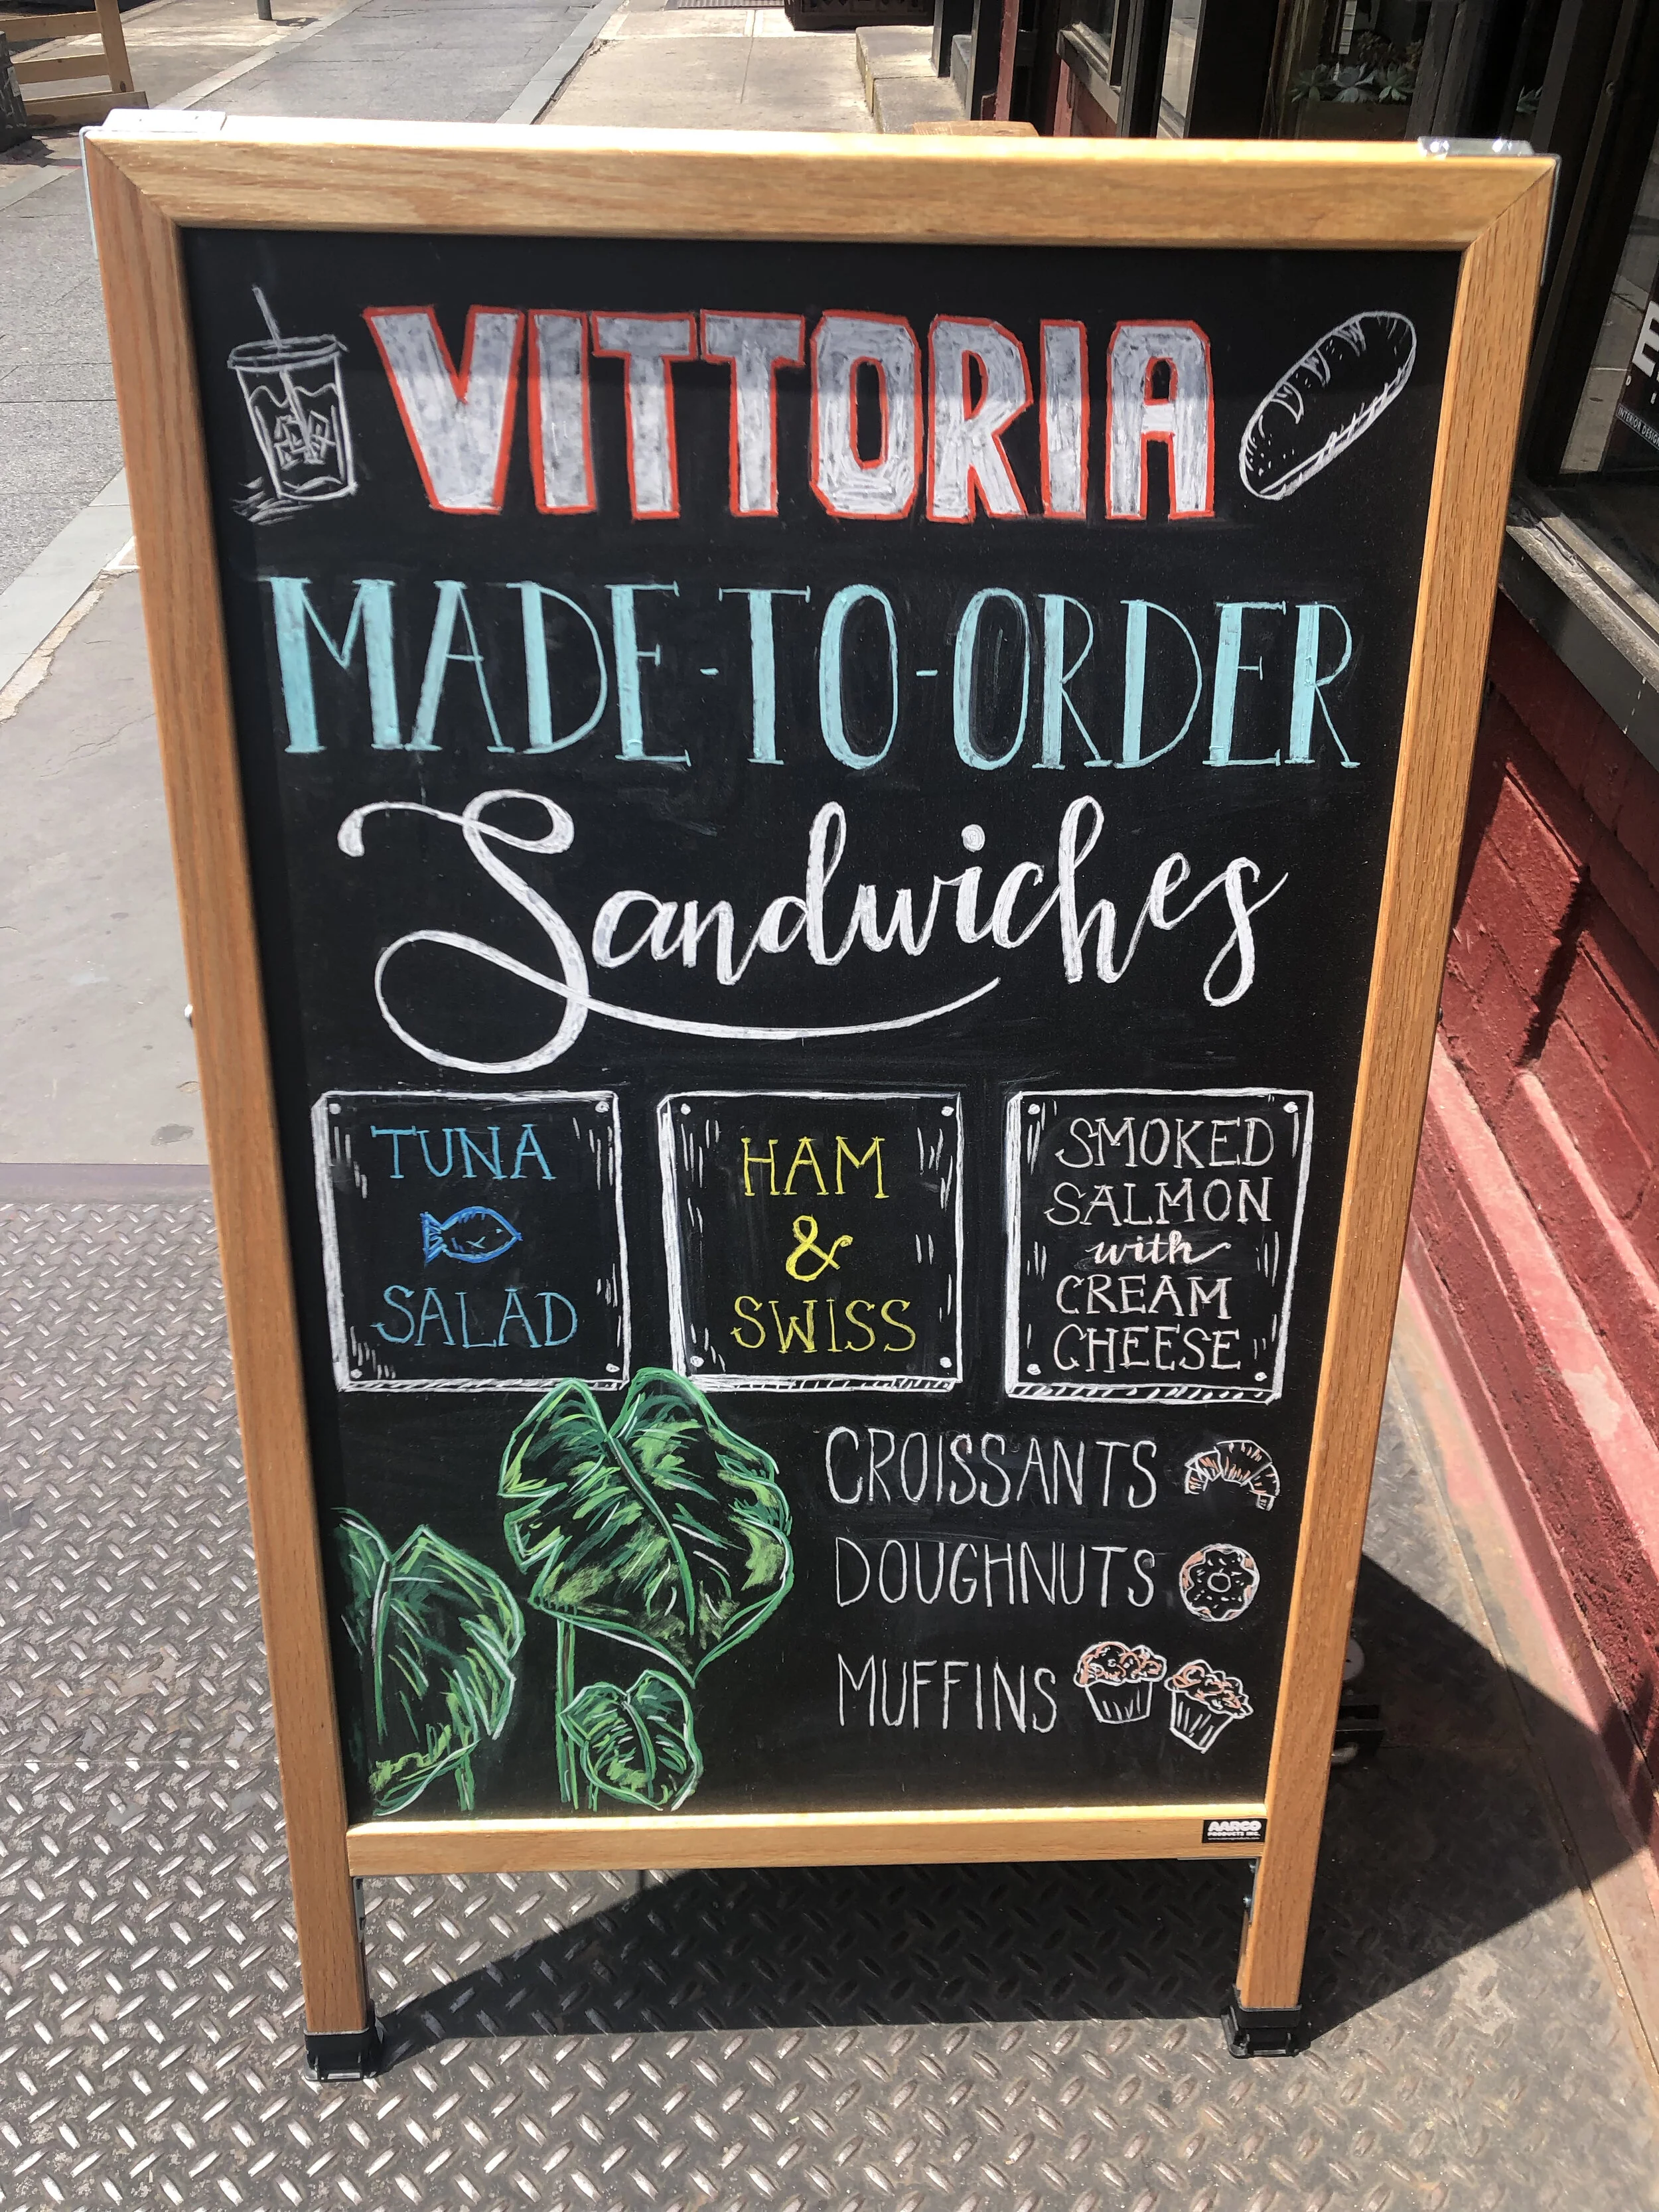 VITTORIA
MADE-TO-ORDER
Sandwiches
TUNA
SALAD
HAM
&
SWISS
SMOKED
SALMON
with
CREAM
CHEESE
CROISSANTS
DOUGHNUTS
MUFFINS
AARCO
PRODUCTS INC.